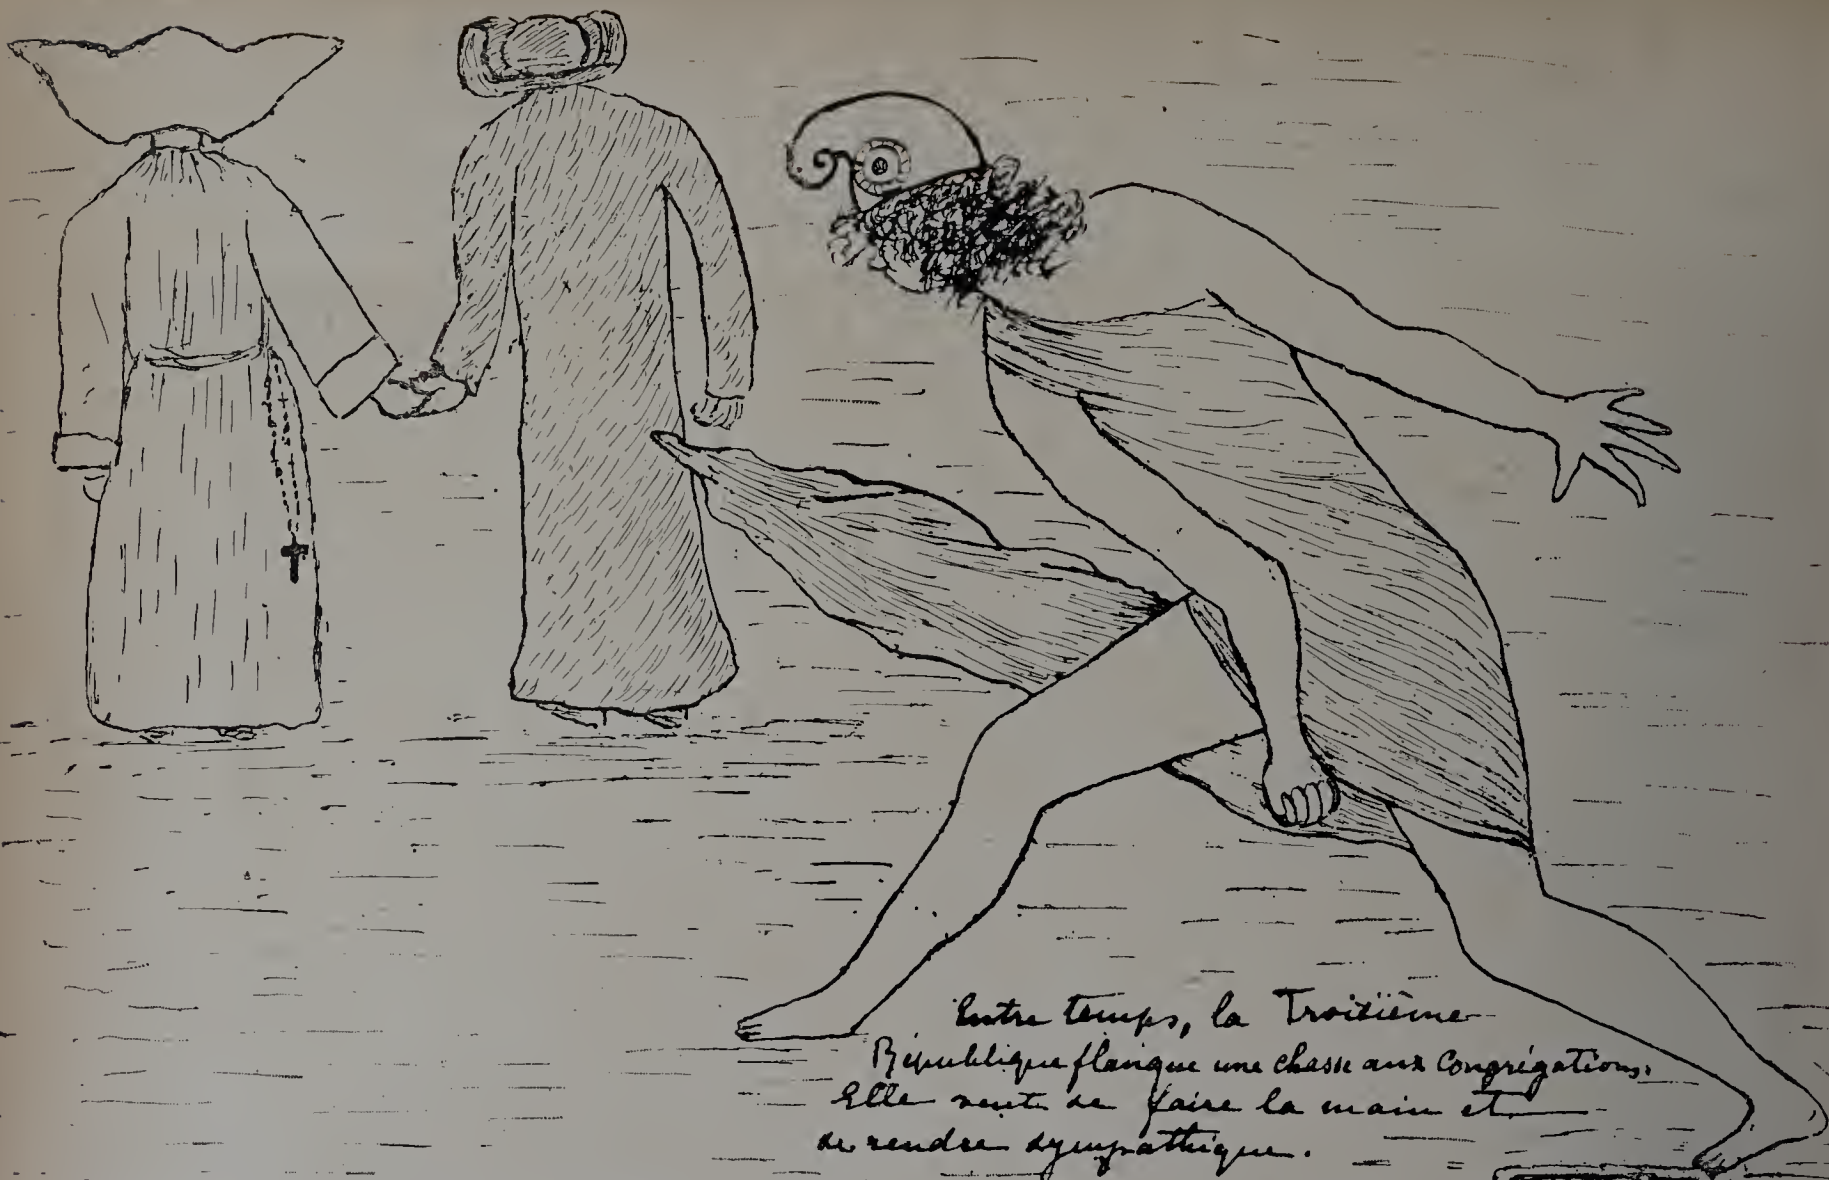 Entre temps, la Troisième
République flanque une chasse aux Congrégations.
Elle veut se faire la main et
se rendre sympathique.